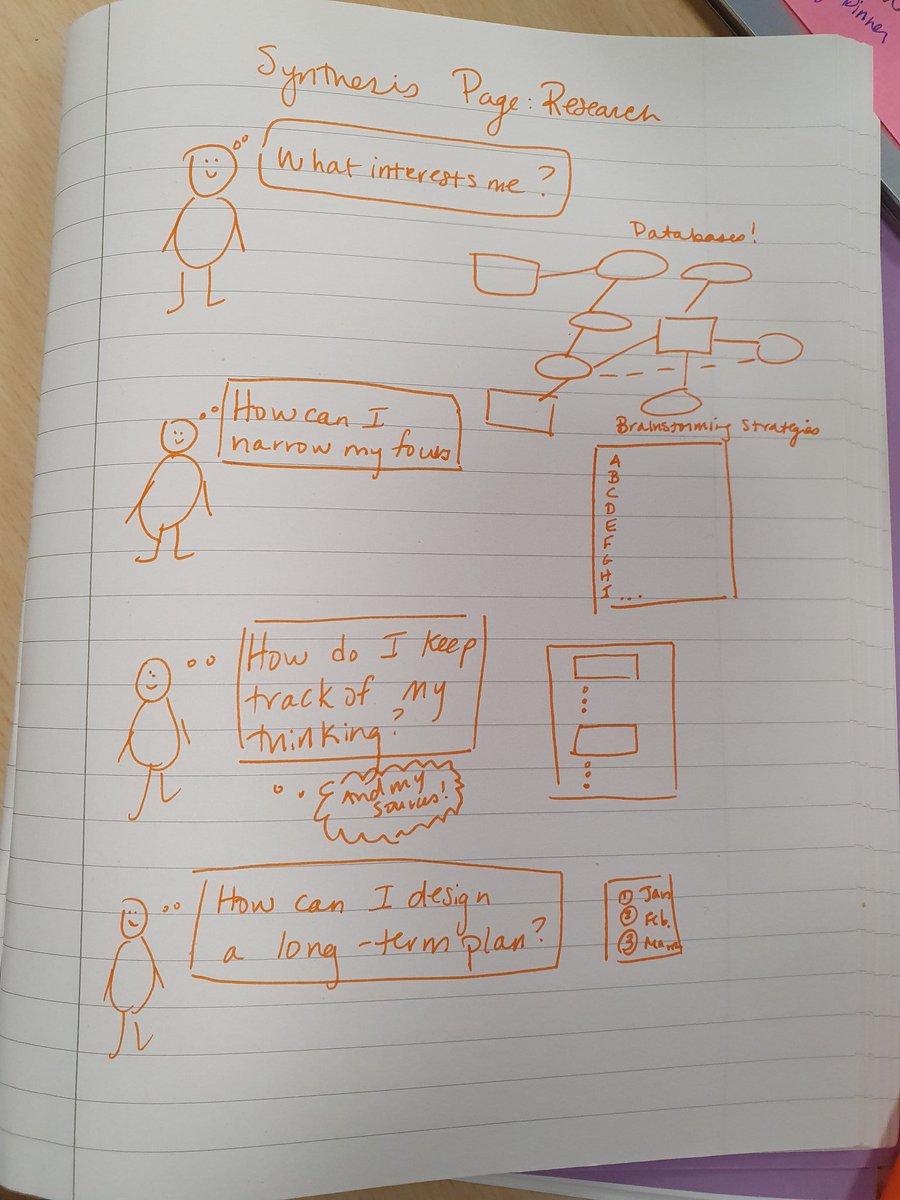 Dinner
Synthesis Page: Research
What interests me?
Databases!
How can I
narrow my focus
Brainstorming Strategies
A
B
C
D
E
F
G
H
I...
How do I keep
track of my
thinking?
And my
sources!
How can I design
a long-term plan?
① Jan
② Feb.
③ Mar